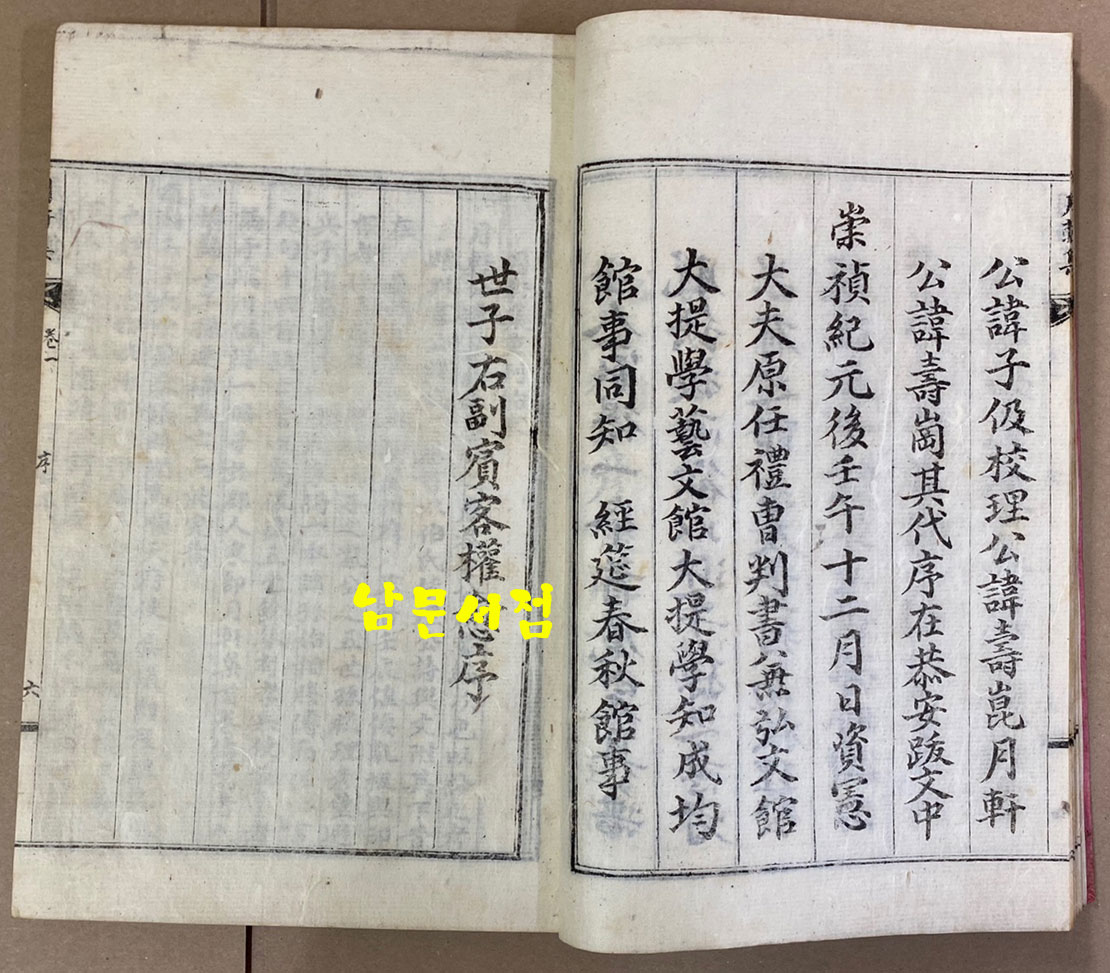 公諱子伋校理公諱壽崑月軒
公諱壽崗其代序在恭安跋文中
崇禎紀元後壬午十二月日資憲
大夫原任禮曹判書兼弘文館
大提學藝文館大提學知成均
館事同知 經筵春秋館事
世子右副賓客權 序
남문서점
卷一
序
六